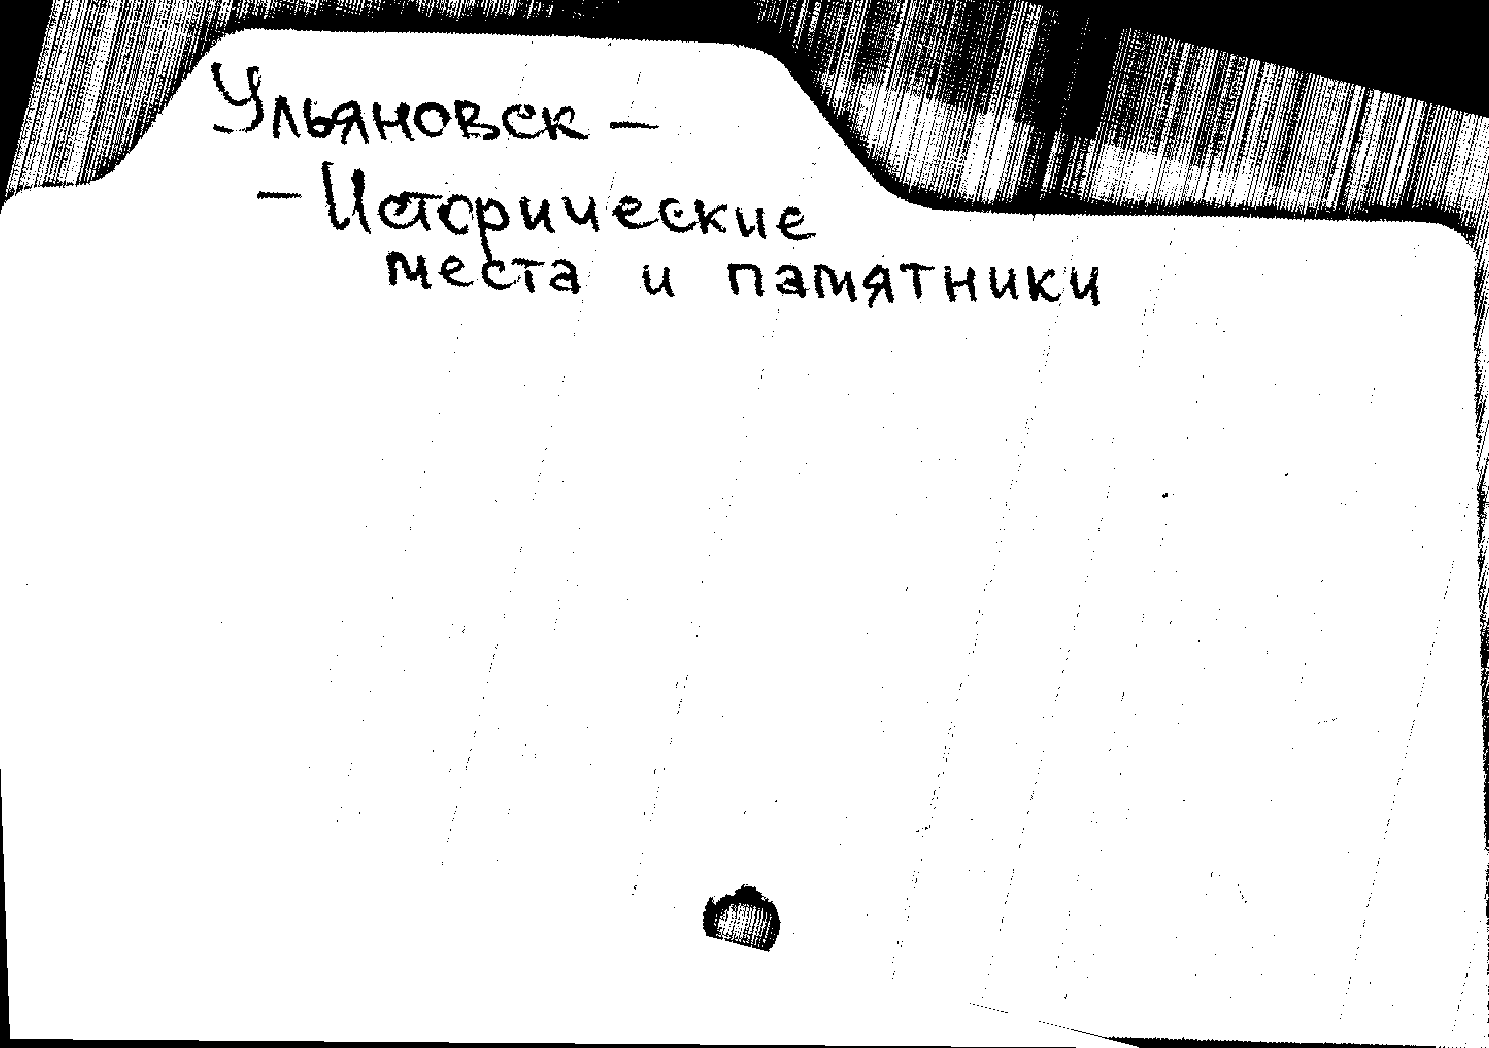 Ульяновск –
– Исторические
места и памятники